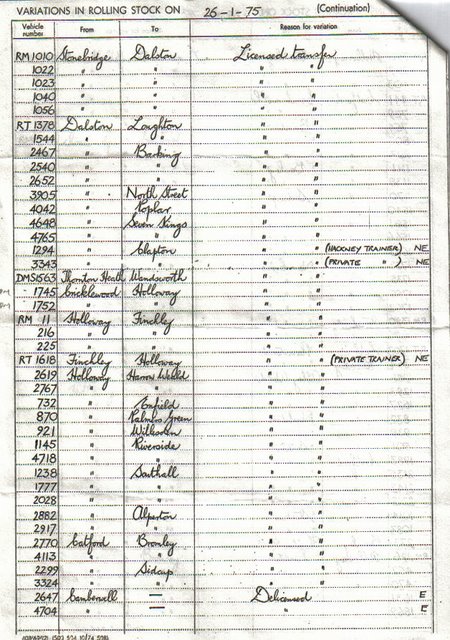 VARIATIONS IN ROLLING STOCK ON 26-1-75 (Continuation)
Vehicle number From To Reason for variation
RM 1010 Stonebridge Dalston Licensed transfer
1022 " " " "
1023 " " " "
1040 " " " "
1056 " " " "
RT 1378 Dalston Loughton " "
1544 " " " "
2467 " Barking " "
2540 " " " "
2652 " " " "
3905 " North Street " "
4042 " Poplar " "
4648 " Seven Kings " "
4765 " " " "
1294 " Clapton " " (HACKNEY TRAINER) NE
3343 " " " " (PRIVATE " ) NE
DMS1563 Thornton Heath Wandsworth " "
1745 Cricklewood Holloway " "
1752 " " " "
RM 11 Holloway Finchley " "
216 " " " "
225 " " " "
RT 1618 Finchley Holloway " " (PRIVATE TRAINER) NE
2619 Holloway Harrow Weald " "
2767 " " " "
732 " Enfield " "
870 " Palmers Green " "
921 " Willesden " "
1145 " Riverside " "
4718 " " " "
1238 " Southall " "
1777 " " " "
2028 " " " "
2882 " Alperton " "
2917 " " " "
2770 Catford Bromley " "
4113 " " " "
2299 " Sidcup " "
3324 " " " "
2647 Camberwell — Delicensed E
4704 " — " E